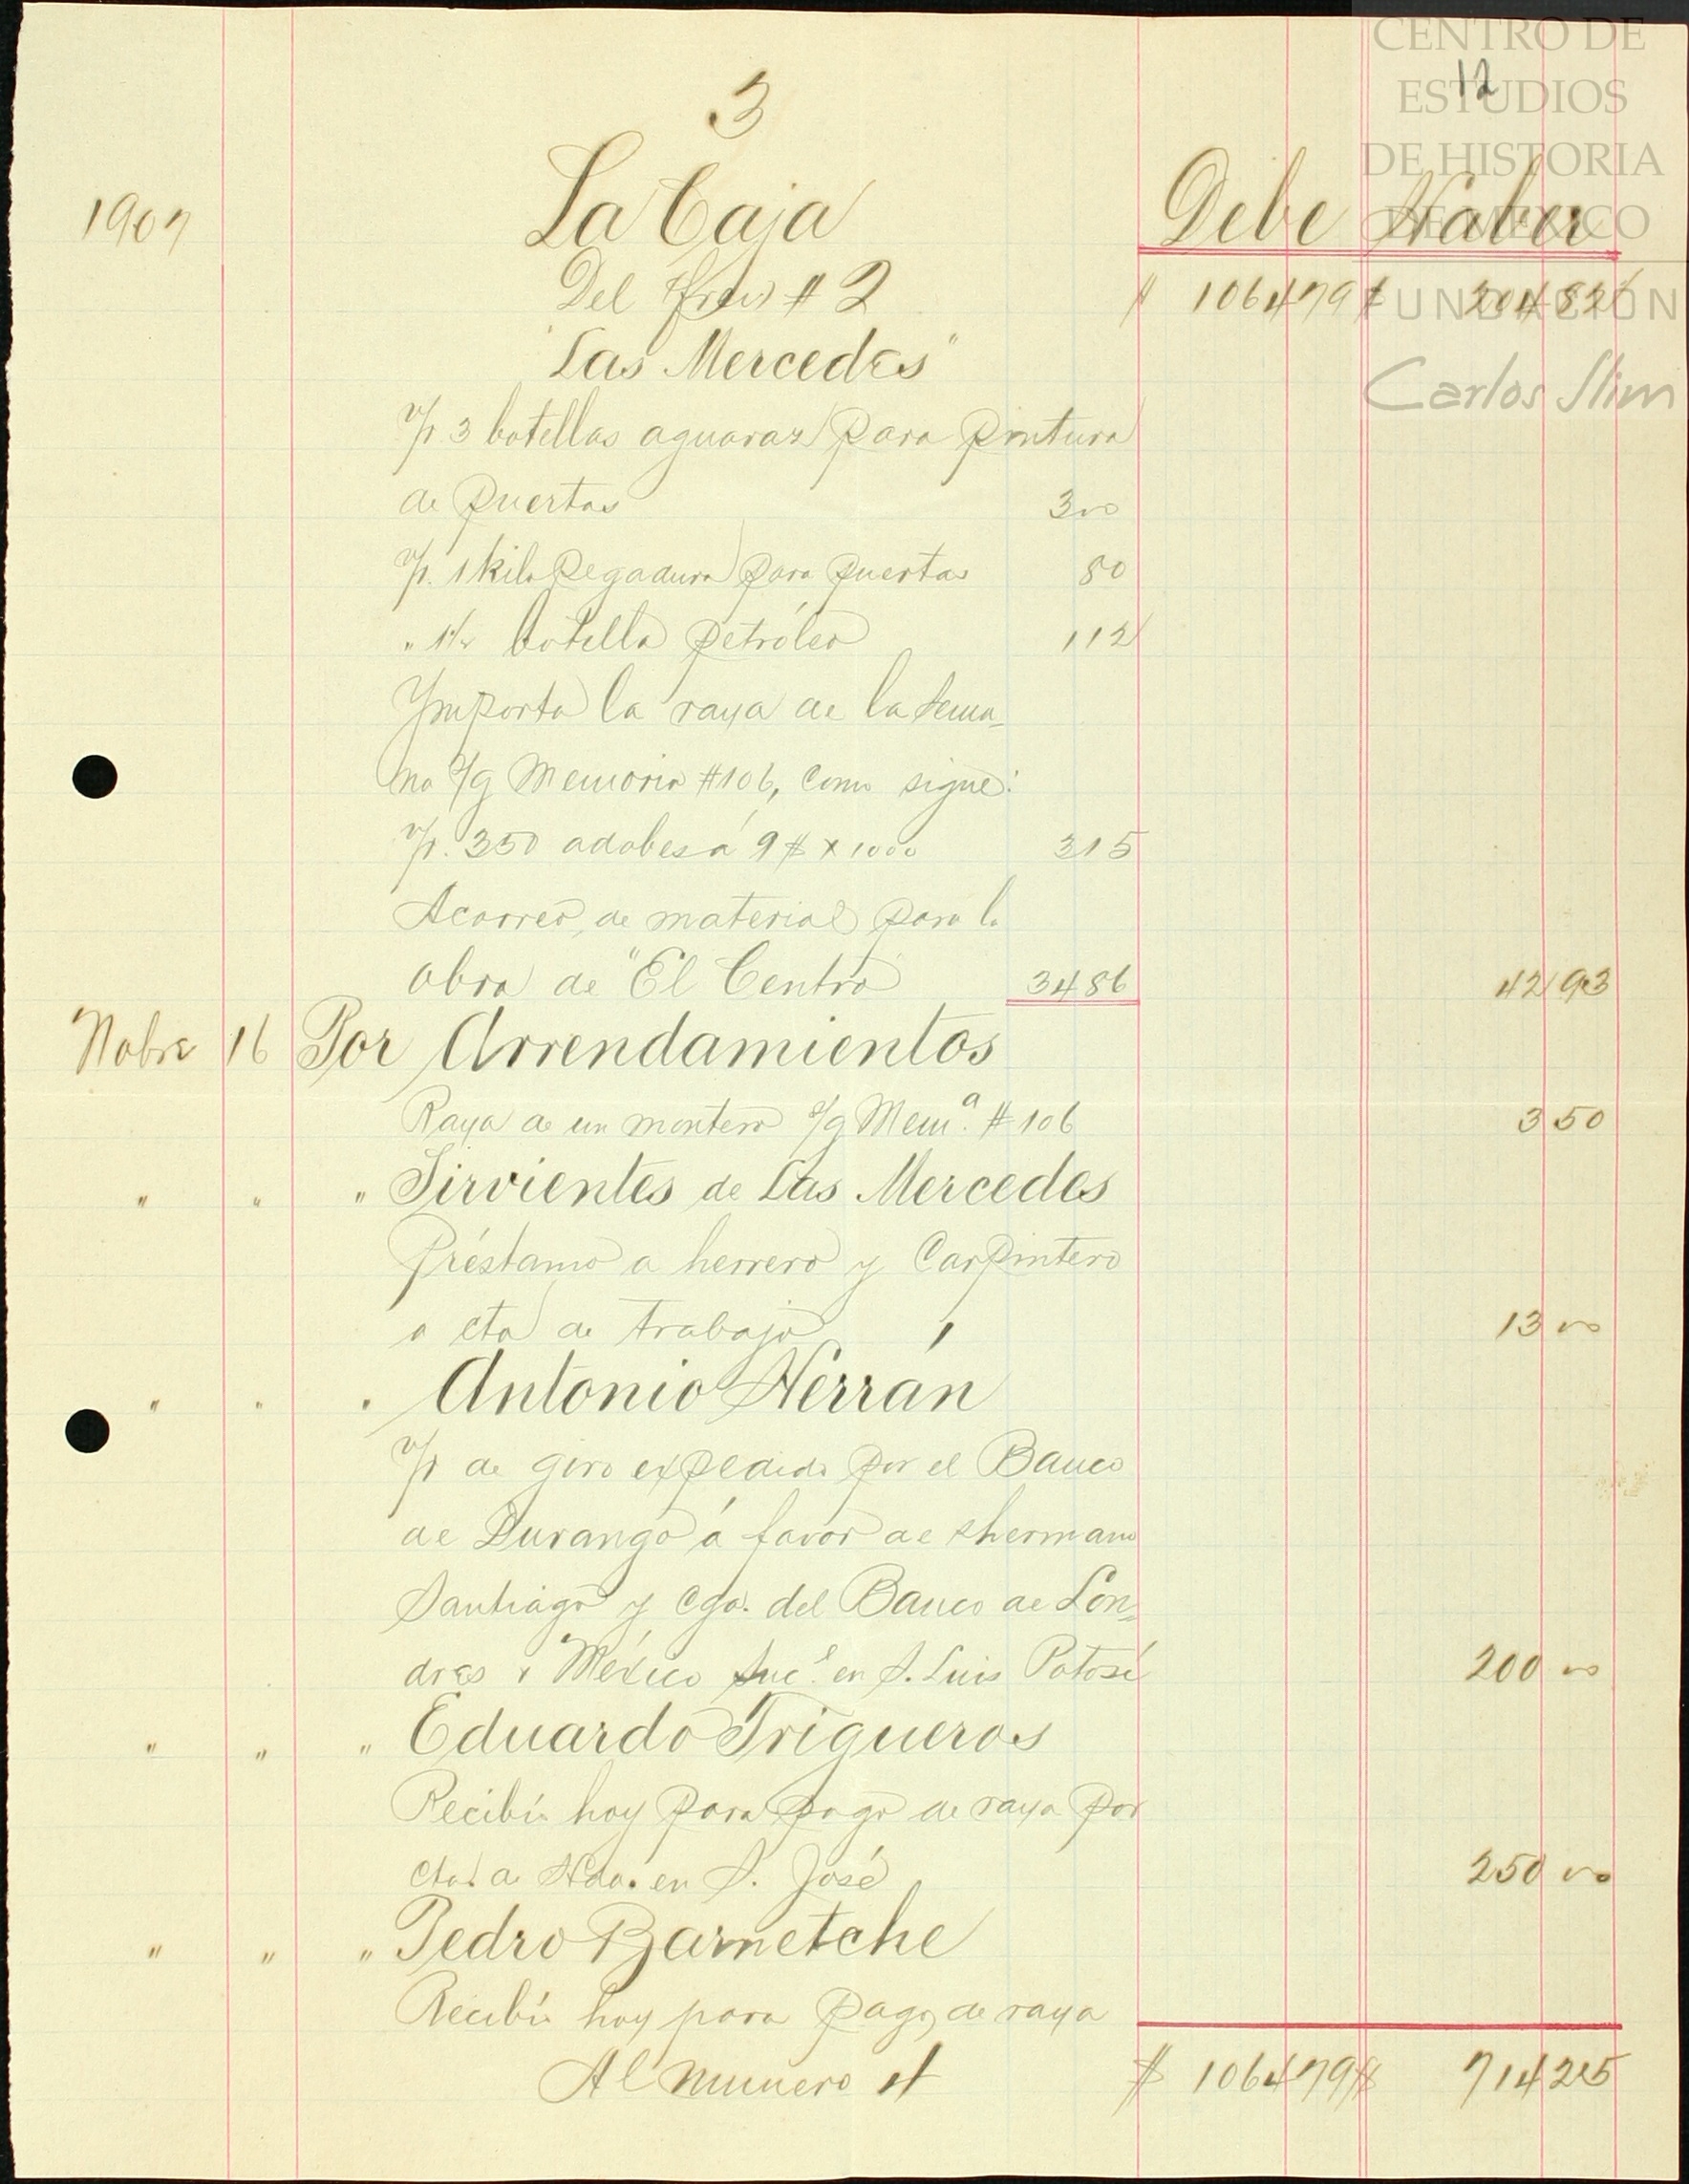 CENTRO DE
ESTUDIOS
DE HISTORIA
DE MÉXICO
FUNDACIÓN
Carlos Slim
12
3
1907 La Caja Debe Haber
Del # 2 $ 1064 79 $ 204 82
"Las Mercedes"
v/p 3 botellas aguaraz para pintura
de puertas 3 00
v/p. 1 kilo pegadura para puertas 80
" 1½ botella petróleo 1 12
Ymporta la raya de la sema-
na s/g Memoria #106, como sigue:
v/p. 350 adobes á 9 $ x 1000 3 15
Acarreo de material para la
obra de "El Centro" 34 86 42 93
Nobre 16 Por Arrendamientos
Raya de un montero s/g Mem.a # 106 3 50
" " " Sirvientes de Las Mercedes
Préstamo a herrero y Carpintero
a cta de trabajo 13 00
" " " Antonio Herrán
v/p de giro expedido por el Banco
de Durango á favor de
Santiago y cgo. del Banco de Lon-
dres y México Sucl. en S. Luis Potosí 200 00
" " " Eduardo Trigueros
Recibió hoy para pago de raya por
cta. de Hda. en S. José 250 00
" " " Pedro Barnetche
Recibió hoy para pago de raya
Al numero 4 $ 1064 79 $ 714 25